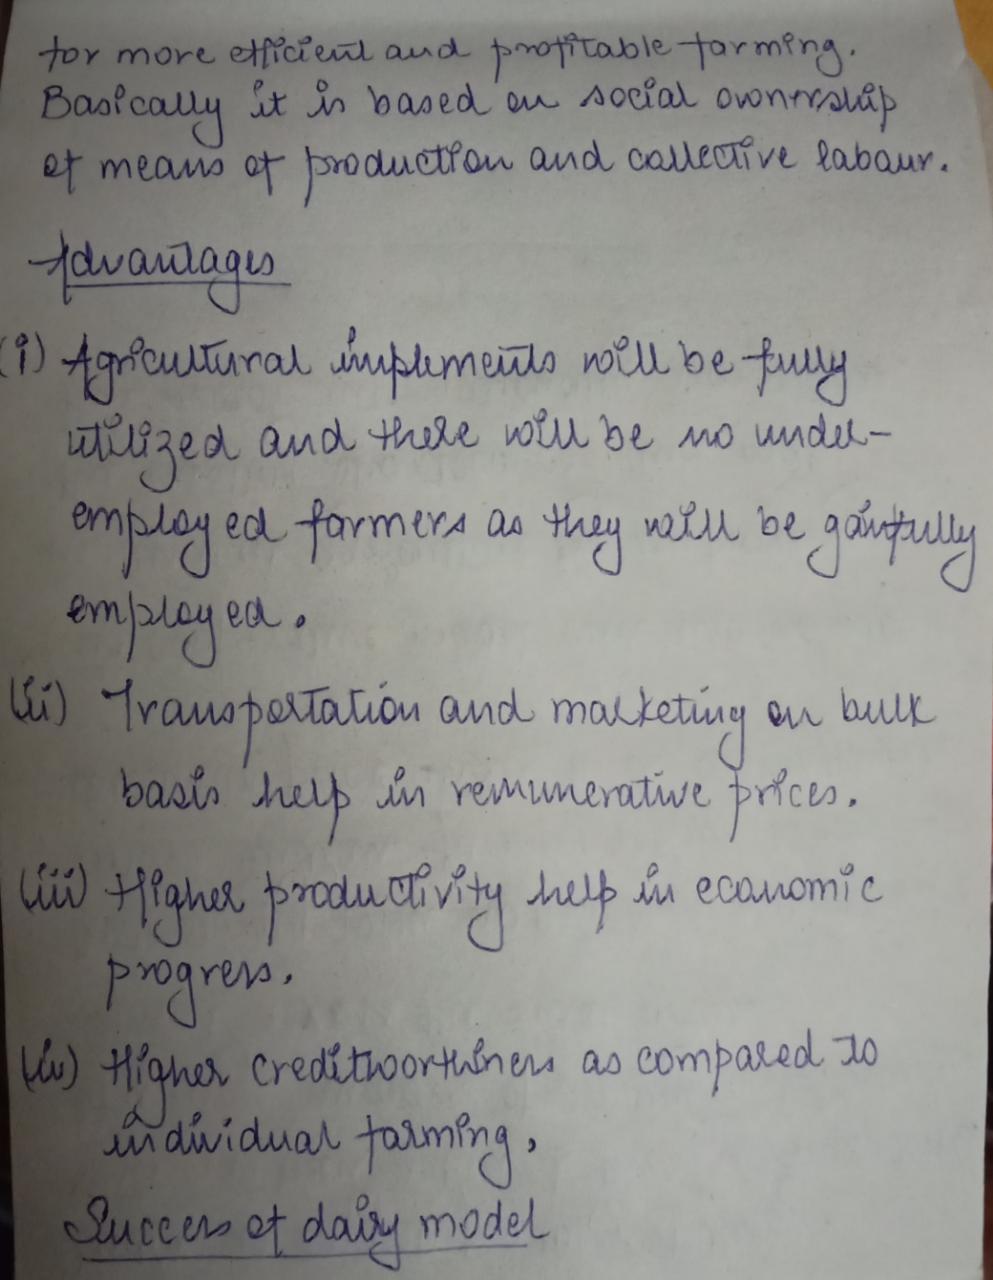 for more efficient and profitable farming.
Basically it is based on social ownership
of means of production and collective labour.
Advantages
(i) Agricultural implements will be fully
utilized and there will be no under-
employed farmers as they will be gainfully
employed.
(ii) Transportation and marketing on bulk
basis help in remunerative prices.
(iii) Higher productivity help in economic
progress.
(iv) Higher creditworthiness as compared to
individual farming,
Success of dairy model